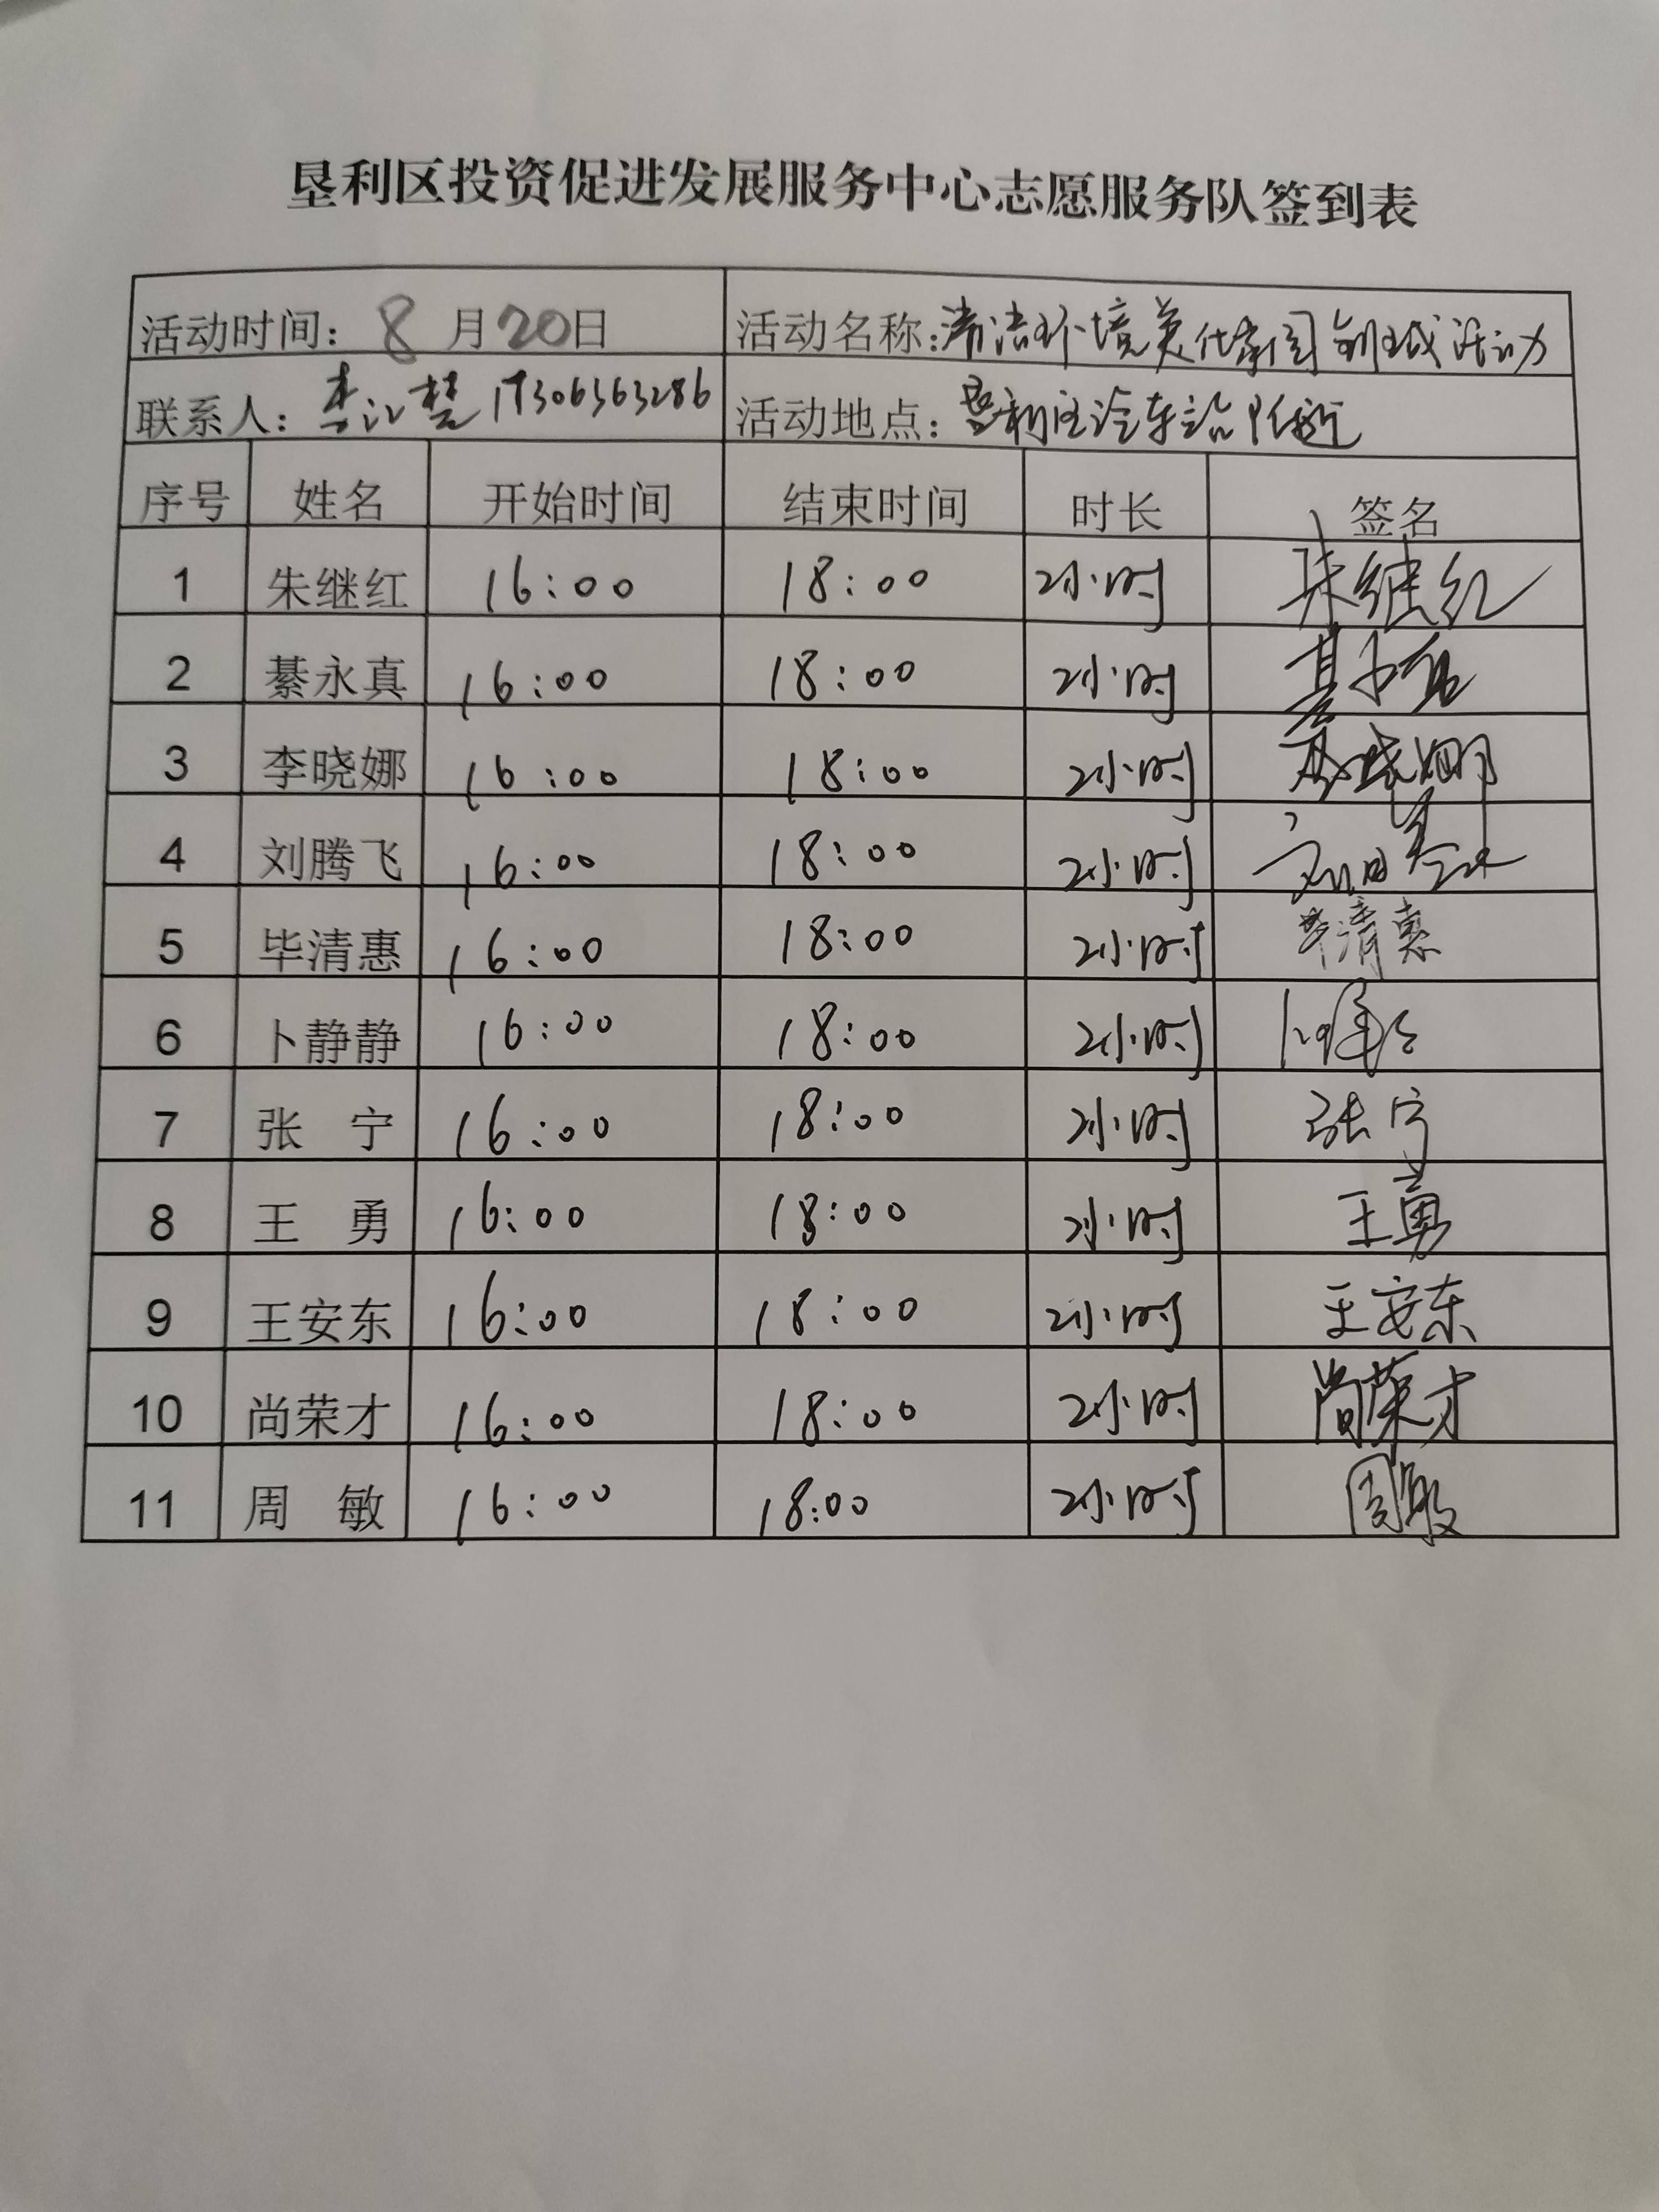 垦利区投资促进发展服务中心志愿服务队签到表
活动时间：8月20日 活动名称：清洁环境美化家园创城活动
联系人：李江楚 17306363286 活动地点：垦利区汽车站附近
序号 姓名 开始时间 结束时间 时长 签名
1 朱继红 16:00 18:00 2小时 朱继红
2 綦永真 16:00 18:00 2小时 綦永真
3 李晓娜 16:00 18:00 2小时 李晓娜
4 刘腾飞 16:00 18:00 2小时
5 毕清惠 16:00 18:00 2小时 毕清惠
6 卜静静 16:00 18:00 2小时 卜静静
7 张 宁 16:00 18:00 2小时 张宁
8 王 勇 16:00 18:00 2小时 王勇
9 王安东 16:00 18:00 2小时 王安东
10 尚荣才 16:00 18:00 2小时 尚荣才
11 周 敏 16:00 18:00 2小时 周敏